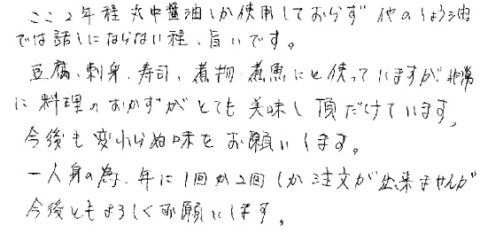 ここ2年程 丸中醤油しか使用しておらず 他のしょう油
では話しにならない程、旨いです。
豆腐、刺身、寿司、煮物、煮魚にと使っていますが、非常
に料理のおかずがとても美味し頂だけています。
今後も変わらぬ味をお願いします。
一人身の為、年に1回か2回しか注文が出来ませんが
今後ともよろしくお願いします。